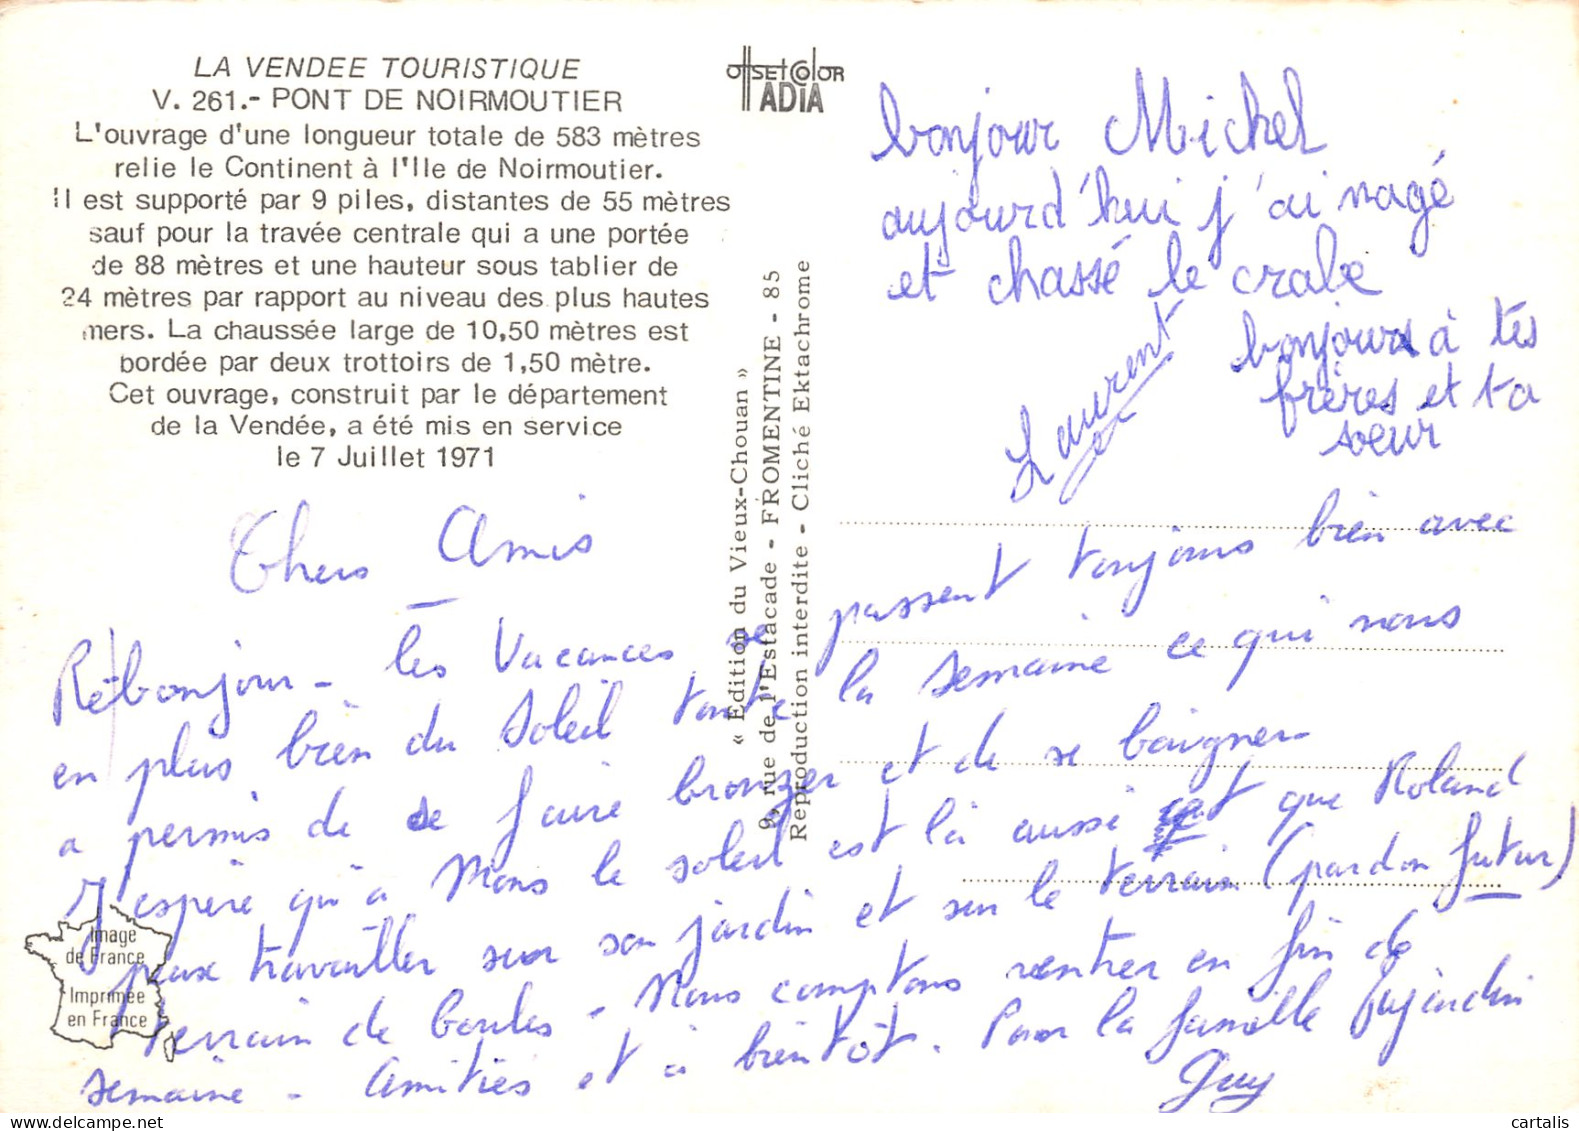 LA VENDEE TOURISTIQUE
V. 261.- PONT DE NOIRMOUTIER
L'ouvrage d'une longueur totale de 583 mètres
relie le Continent à l'Ile de Noirmoutier.
Il est supporté par 9 piles, distantes de 55 mètres
sauf pour la travée centrale qui a une portée
de 88 mètres et une hauteur sous tablier de
24 mètres par rapport au niveau des plus hautes
mers. La chaussée large de 10,50 mètres est
bordée par deux trottoirs de 1,50 mètre.
Cet ouvrage, construit par le département
de la Vendée, a été mis en service
le 7 Juillet 1971
OffSEtColOR
ADIA
« Edition du Vieux-Chouan »
9, rue de l'Estacade - FROMENTINE - 85
Reproduction interdite - Cliché Ektachrome
bonjour Michel
aujourd'hui j'ai nagé
et chassé le crabe
bonjours à tes
frères et ta
soeur
Laurent
Chers Amis
Rebonjour - les Vacances se passent toujours bien avec
en plus bien du Soleil toute la semaine ce qui nous
a permis de se faire bronzer et de se baigner
J'espère qu'a Mons le soleil est là aussi et que Roland
peux travailler sur son jardin et sur le terrain (pardon futur)
terrain de boules - Nous comptons rentrer en fin de
semaine - Amitiés et à bientôt. Pour la famille Dujardin
Guy
Image
de France
Imprimée
en France
cartalis